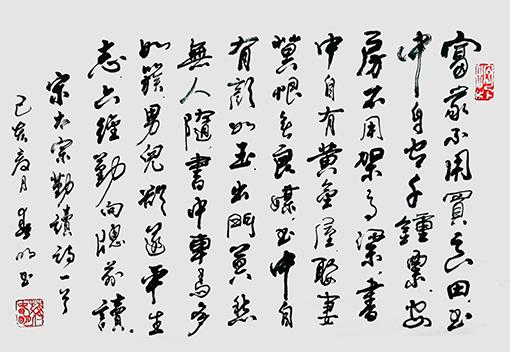 富家不用買良田書
中自有千鍾粟安
房不用架高梁書
中自有黃金屋娶妻
莫恨無良媒書中自
有顏如玉出門莫愁
無人隨書中車馬多
如簇男兒欲遂平生
志六經勤向窗前讀
宋太宗勤讀詩一首
己亥月明書